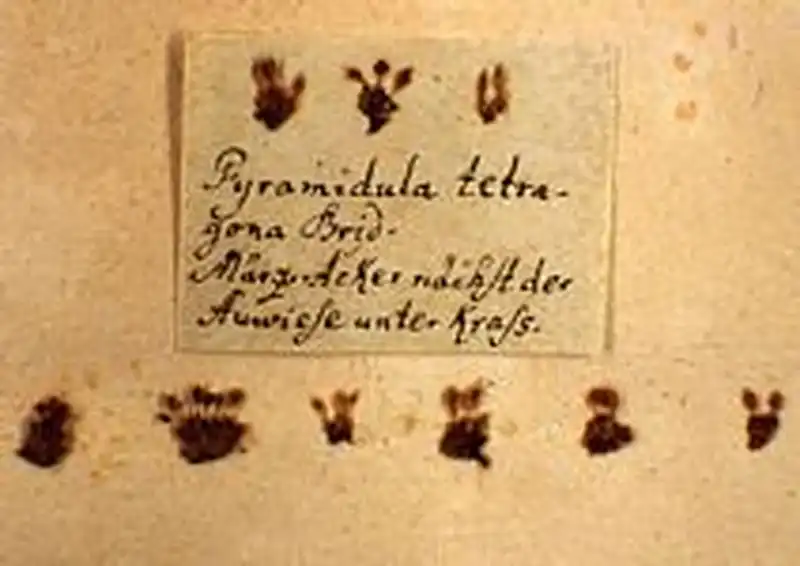 Pyramidula tetra-
gona Brid.
März. Acker nächst der
Auwiese unter Krass.